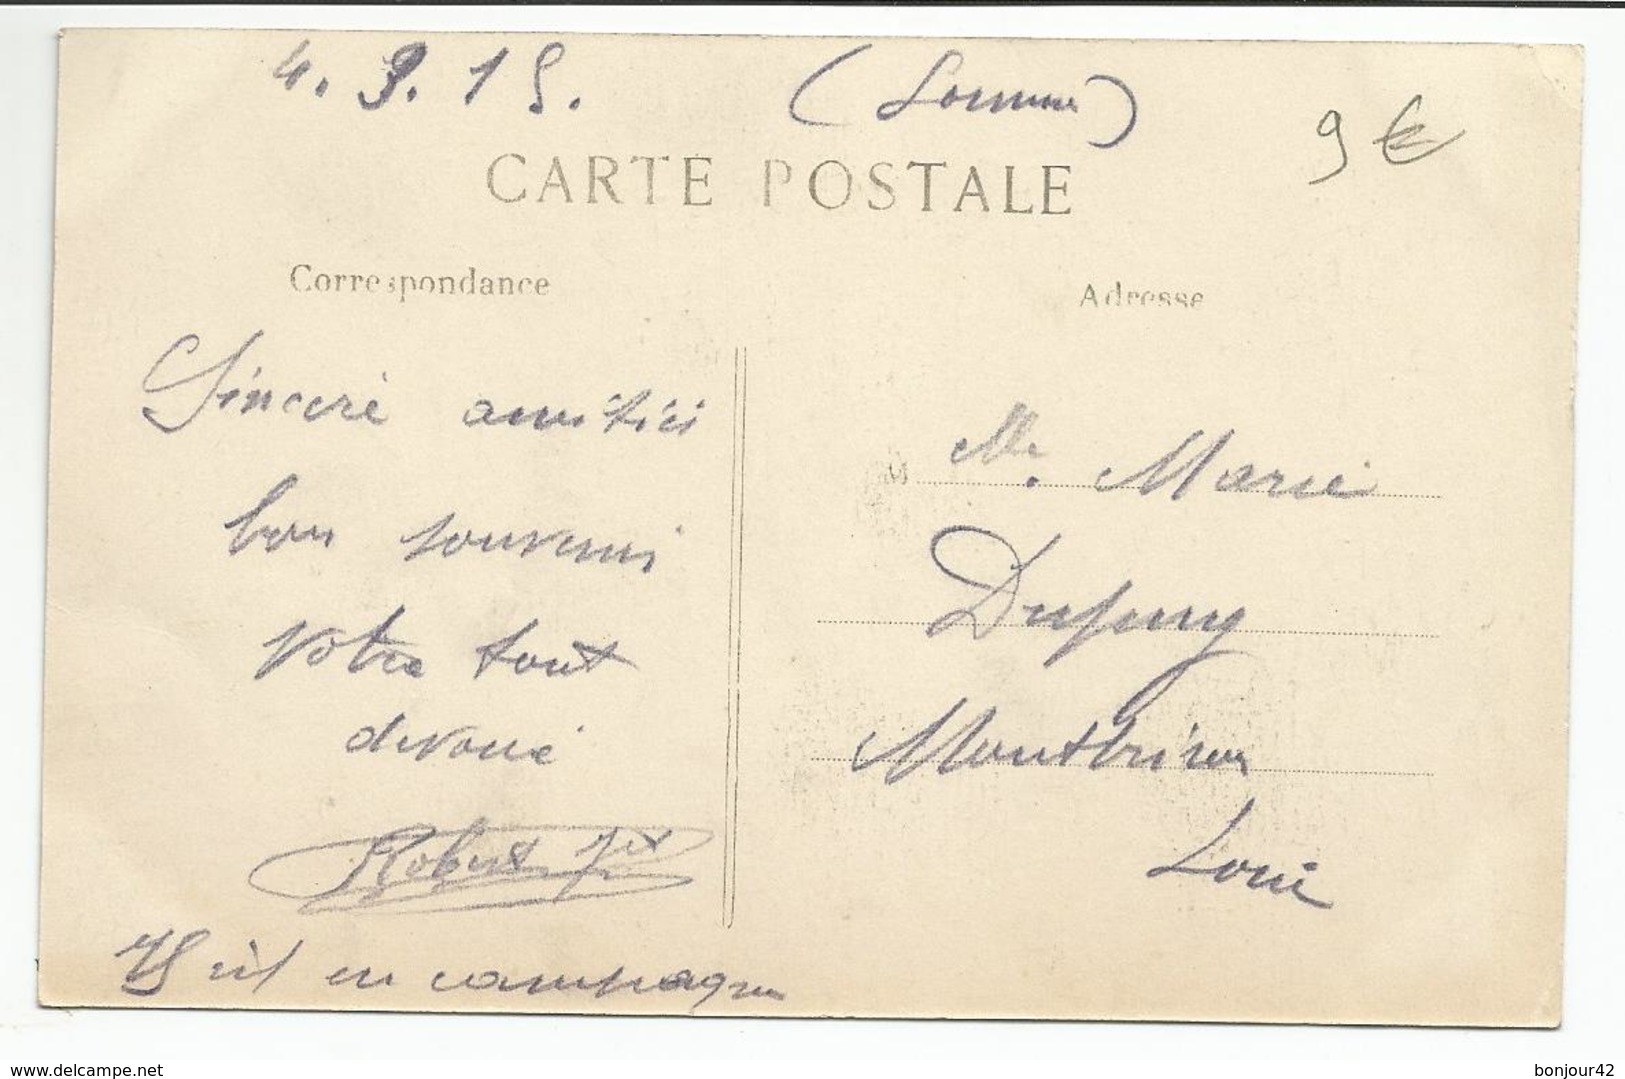 4.9.15. (Somme)
9 €
CARTE POSTALE
Correspondance
Adresse
Sincère amitiés
bon souvenir
votre tout
devoué
Robert
en campagne
Mlle. Marie
Dupuy
Montbrison
Loire
www.delcampe.net
bonjour42